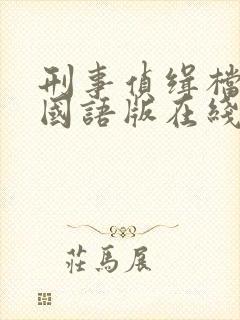 刑事偵缉檔
國語版在綫
莊馬展